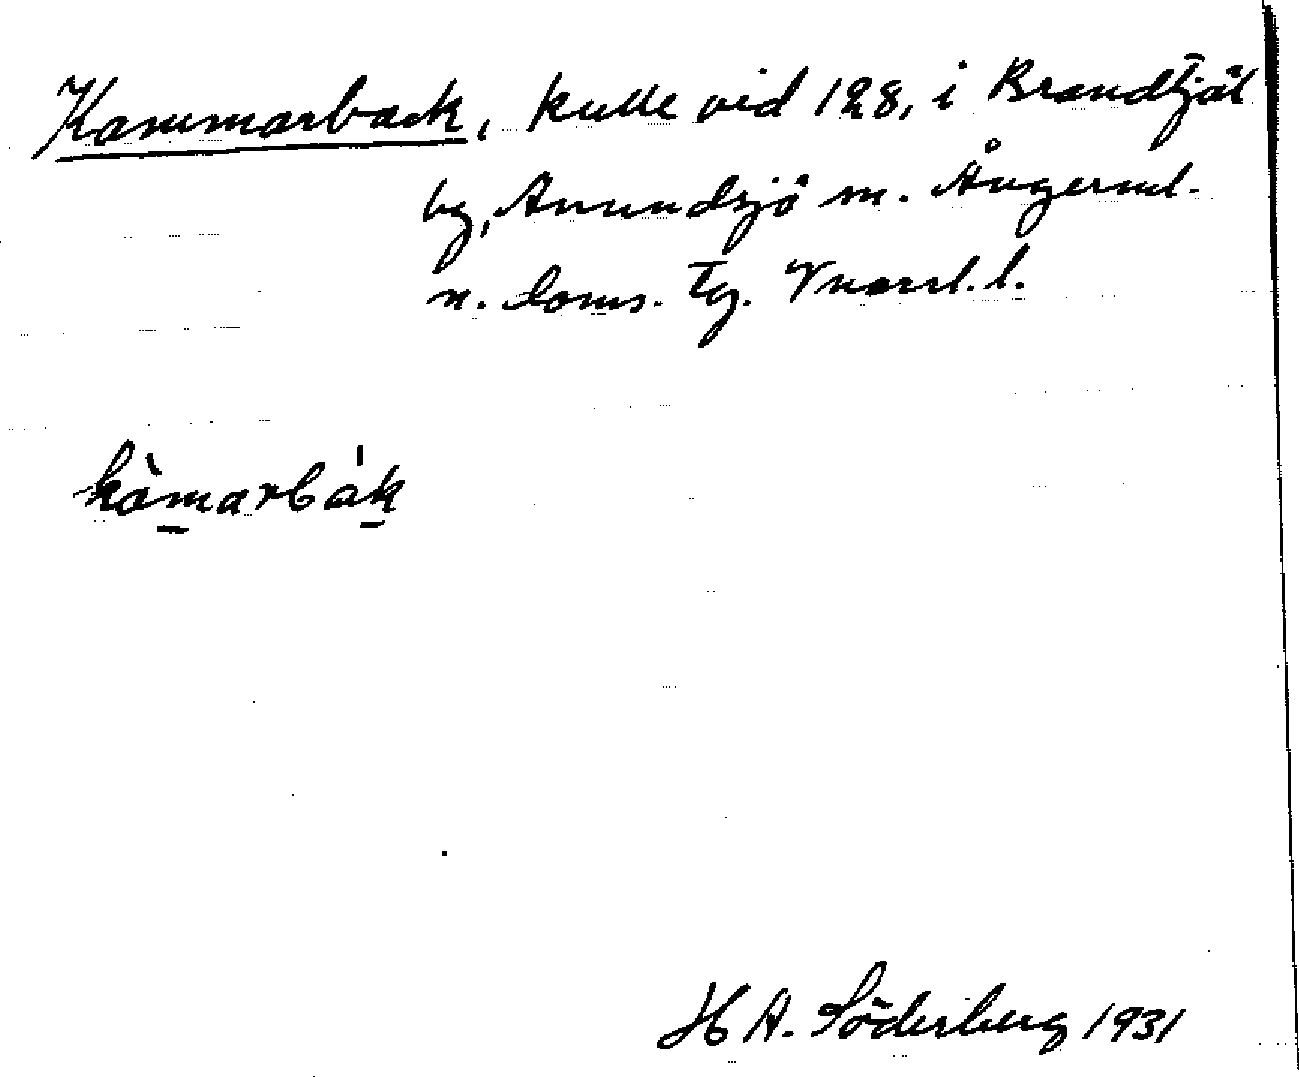 Kammarback, kulle vid 128, i Brandtjäl
by, Anundsjö sn. Ångerml.
n. doms. tg. Vnorrl. l.
kàmarbák
H A. Söderberg 1931